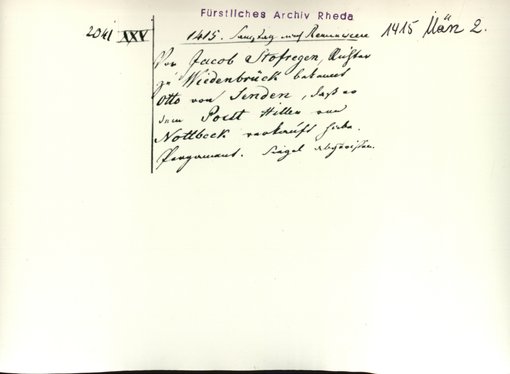 Fürstliches Archiv Rheda
2041 XXV 1415. Samstag nach Reminiscere 1415 März 2.
Vor Jacob Stofregen, Richter
zu Wiedenbrück bekennt
Otto von Senden, daß er
dem Postt von
Nottbeck verkauft habe.
Pergament. Siegel abgerissen.